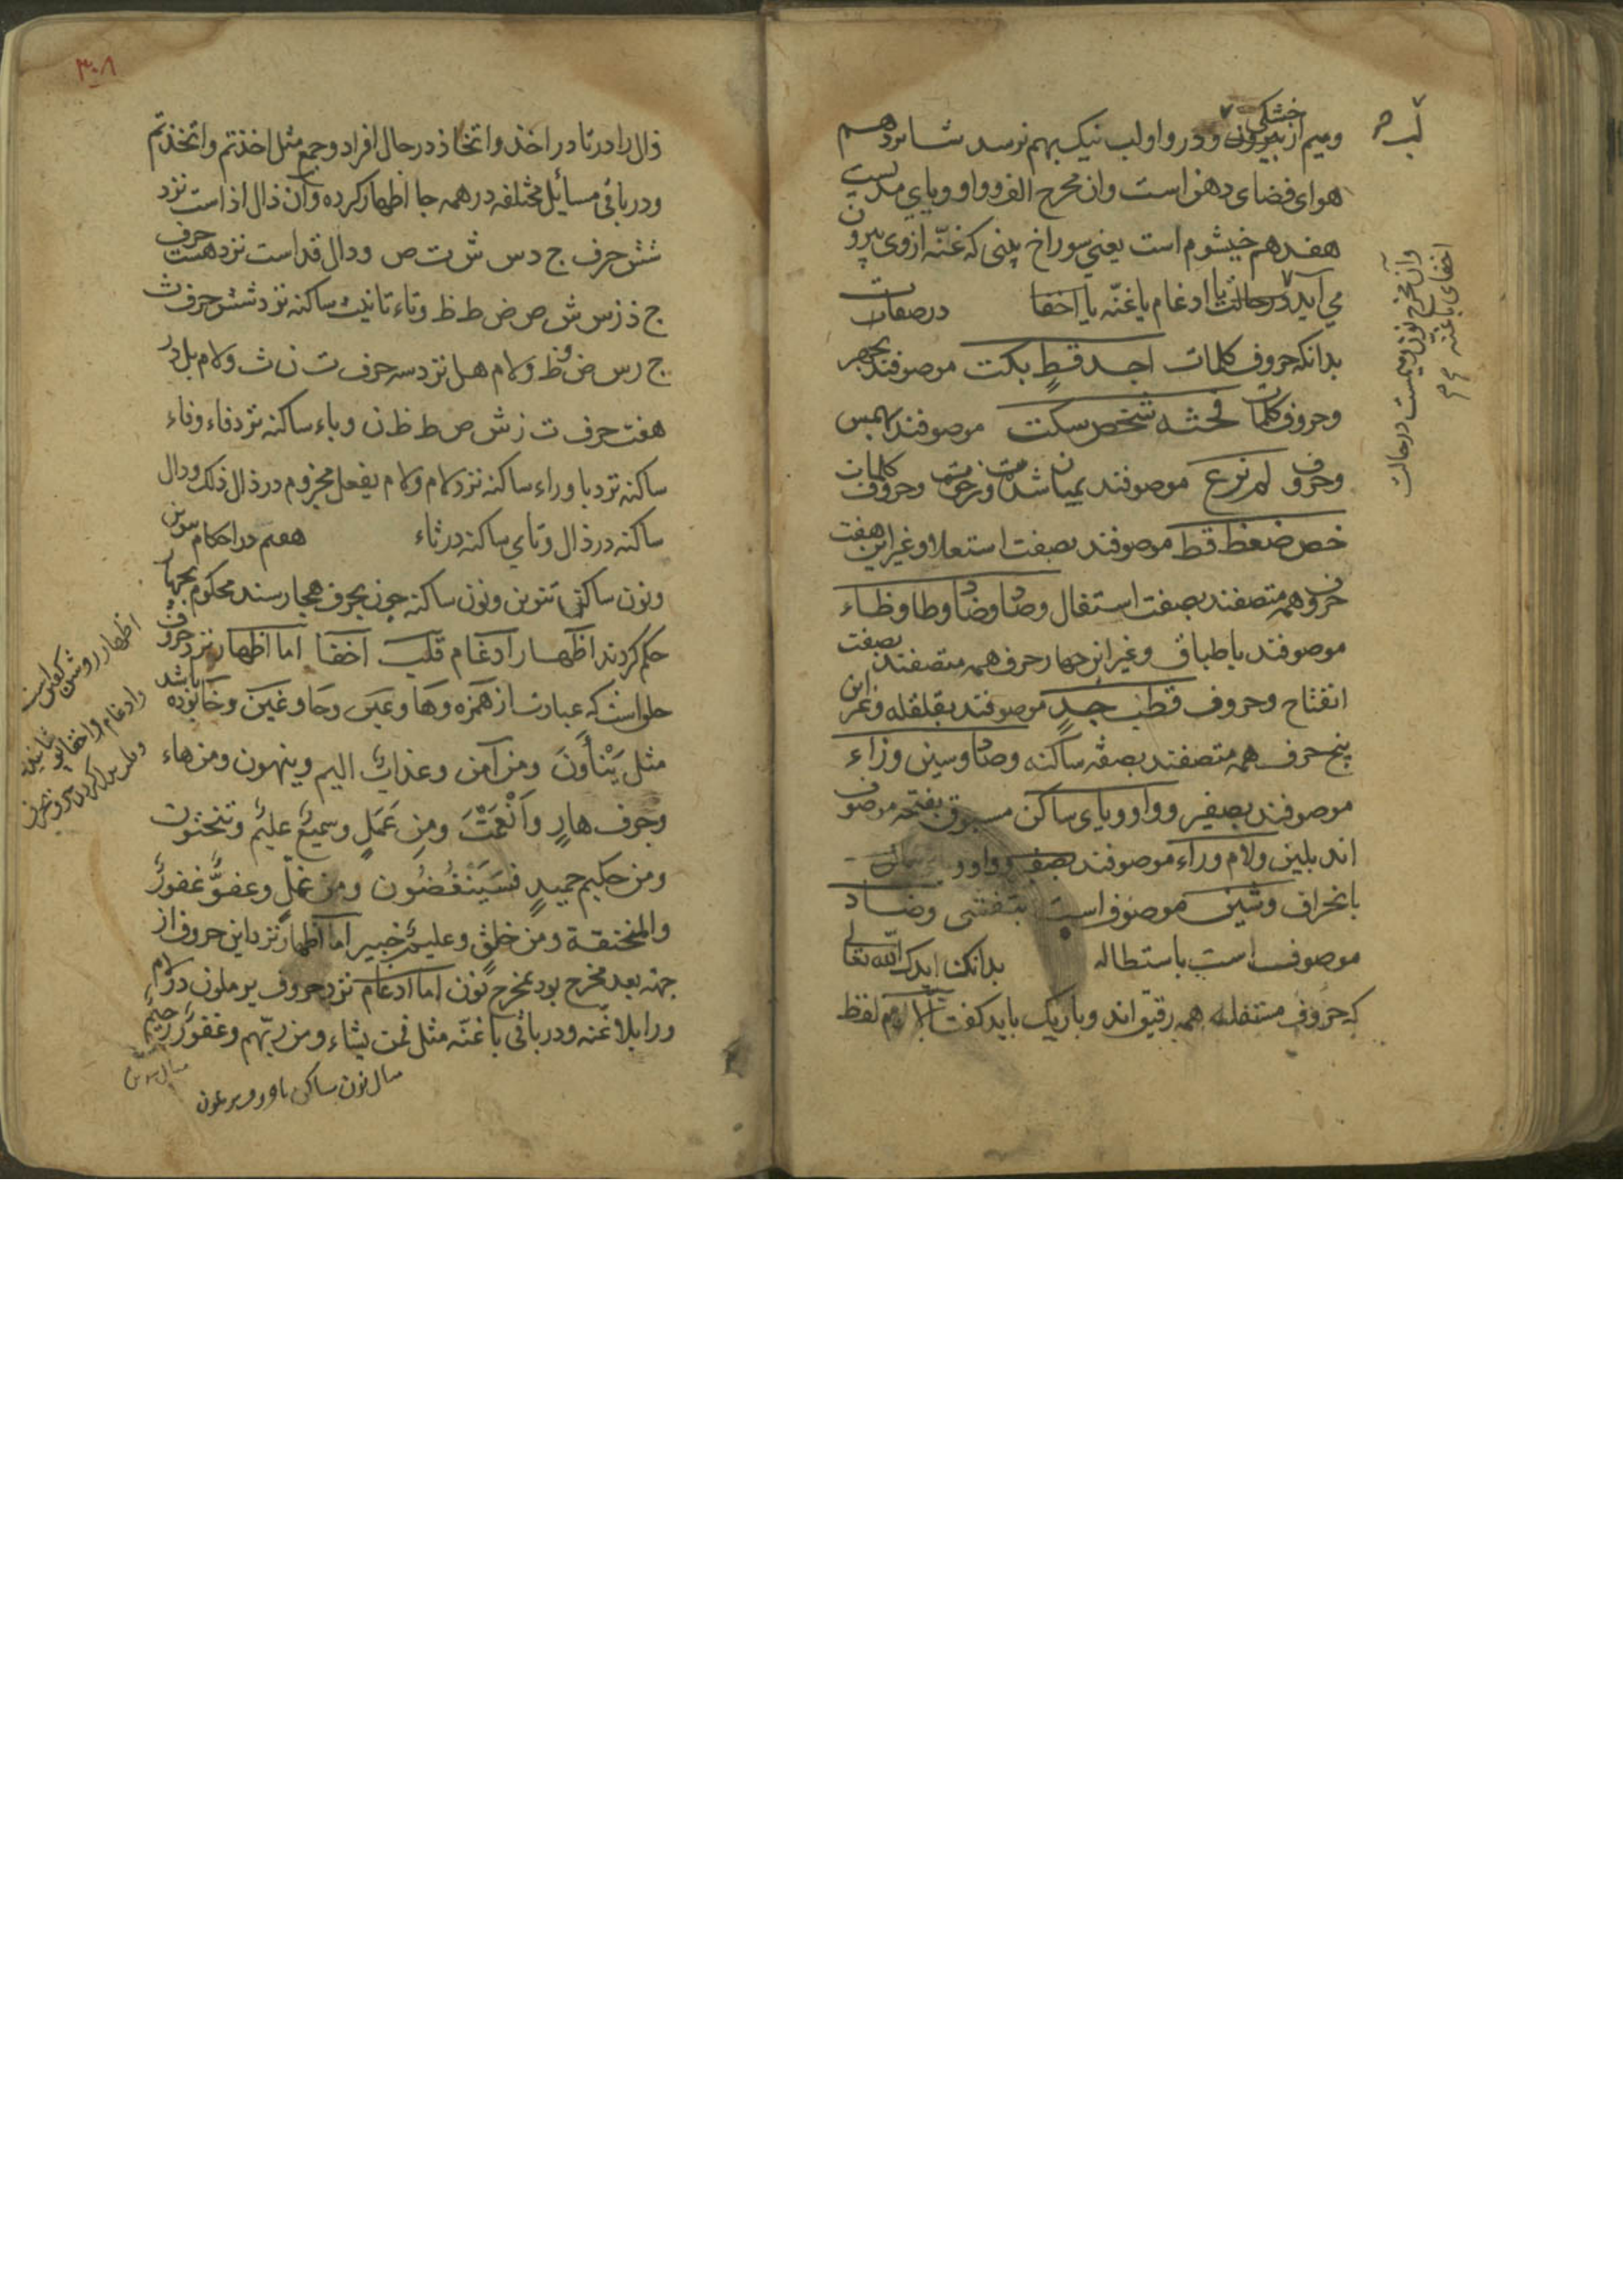 خشکی
ومیم از بیرون ودر واو لب نیک بهم نرسد شانزدهم
هوای فضای دهن است وان مخرج الف وواو ویای مدیست
هفدهم خیشوم است یعنی سوراخ بینی که غنّه ازوی بیرون
می آید درحالت ادغام باغنّه یا اخفا درصفات
بدانکه حروف کلمات اجد قط بکت موصوفند بجهر
وحروف کلمات فحثه شخص سکت موصوفند بهمس
وحروف لم نرع موصوفند بمیان شدت ورخوت وحروف کلمات
خص ضغط قظ موصوفند بصفت استعلا وغیر این هفت
حروف همه متصفند بصفت استفال وصاد وضاد وطا وظاء
موصوفند باطباق وغیر این چهار حرف همه متصفند بصفت
انفتاح وحروف قطب جد موصوفند بقلقله وغیر این
پنج حرف همه متصفند بصفه ساکنه وصاد وسین وزاء
موصوفند بصفیر وواو ویای ساکن مسبوق بفتحه موصوف
اند بلین ولام وراء موصوفند
بانحراف وشین موصوف است بتفشی وضاد
موصوف است باستطاله بدانک ایدک الله تعالی
که حروف مستفله همه رقیق اند وباریک باید گفت الا لام لفظ
لب
وآن مخرج نون ومیمست درحالت
اخفای باغنه
۳۰۸
ذال را در تا در اخذ واتخاذ در حال افراد وجمع مثل اخذتم واتخذتم
ودر باقی مسائل مختلفه در همه جا اظهار کرده وآن ذال اذ است نزد
شش حرف ج د س ش ت ص ودال قد است نزد هشت حرف
ج ذ ز س ش ص ض ط ظ وتاء تانیث ساکنه نزد شش حرف ث
ج ز س ض وظ ولام هل نزد سه حرف ت ن ث ولام بل در
هفت حرف ت ز ش ص ط ظ ن وباء ساکنه نزد فاء وفاء
ساکنه نزد با وراء ساکنه نزد لام ولام یفعل مجزوم در ذال ذلک ودال
ساکنه در ذال وتای ساکنه در ثاء هفتم در احکام تنوین
ونون ساکن تنوین ونون ساکنه چون بحرف هجا رسند محکوم بچهار
حکم کردند اظهار ادغام قلب اخفا اما اظهار نزد حروف
حلق است که عبارت از همزه وها وعین وحا وغین وخا بوده باشد
مثل یَنْأَوْنَ ومن آمن وعذابٌ الیم وینهون ومن هاء
وجرف هارٍ وَاَنْعَمْتَ ومن عَمَلٍ وسمیعٌ علیم وتنحتون
ومن حکیم حمیدٍ فسَیَنْغِضُون ومن غلٍّ وعفوٌّ غفور
والمنخنقة ومن خلقٍ وعلیمٌ خبیر اما اظهار نزد این حروف از
جهه بعد مخرج بود بمخرج نون اما ادغام نزد حروف یرملون در لام
ورا بلاغنّه ودر باقی باغنّه مثل فمن یشاء ومن ربّهم وغفورٌ رحیم
اظهار روشن گفتن است
وادغام واخفا پوشانیدن